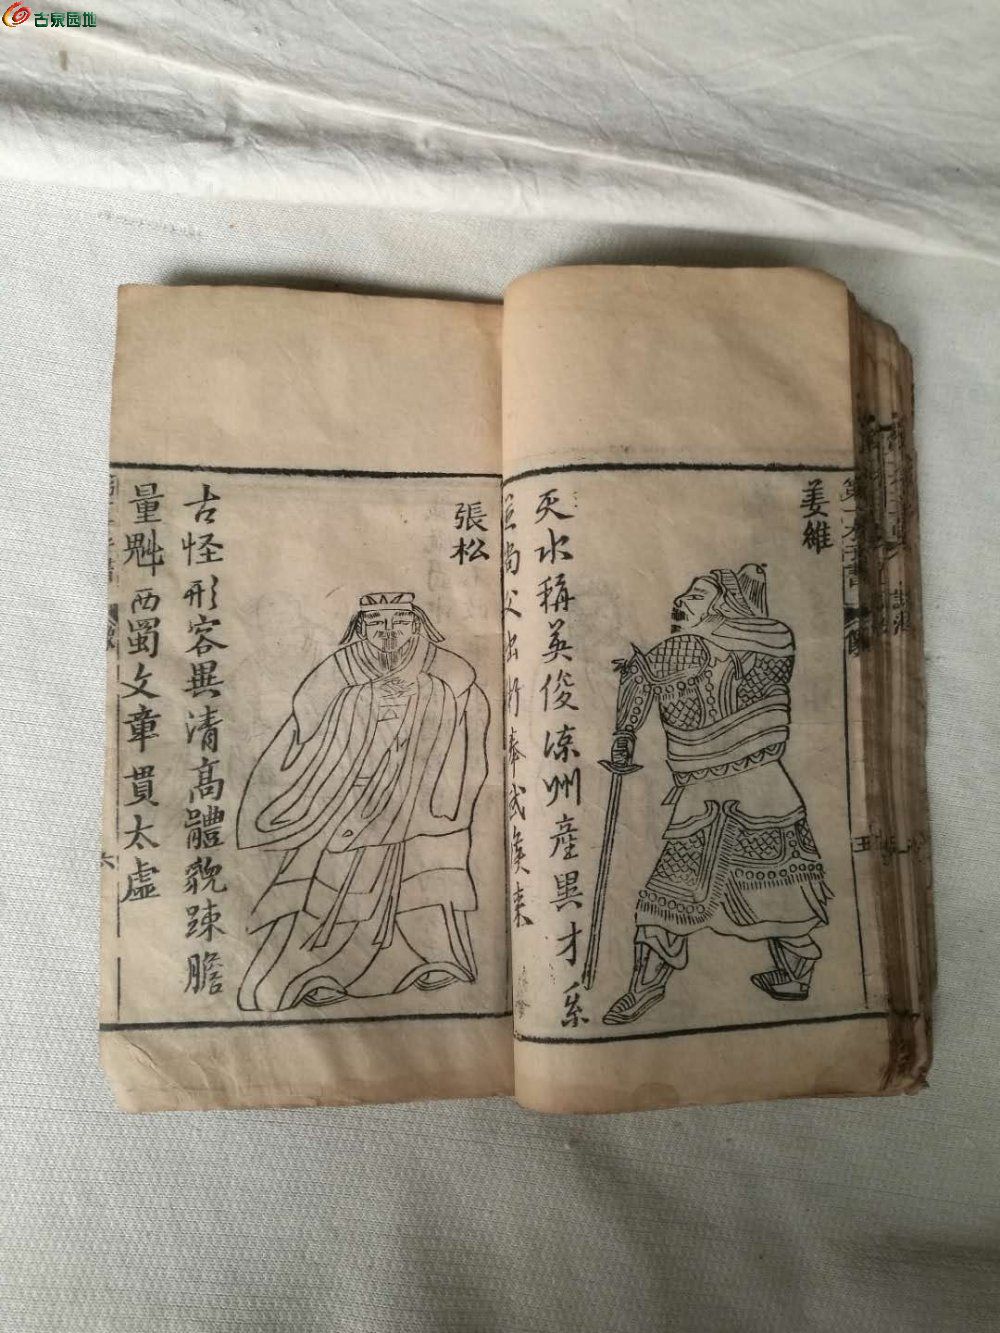 古泉园地
姜維
天水稱英俊涼州產異才系
從尚父出術奉武侯來
張松
古怪形容異清高體貌踈膽
量魁西蜀文章貫太虛
六